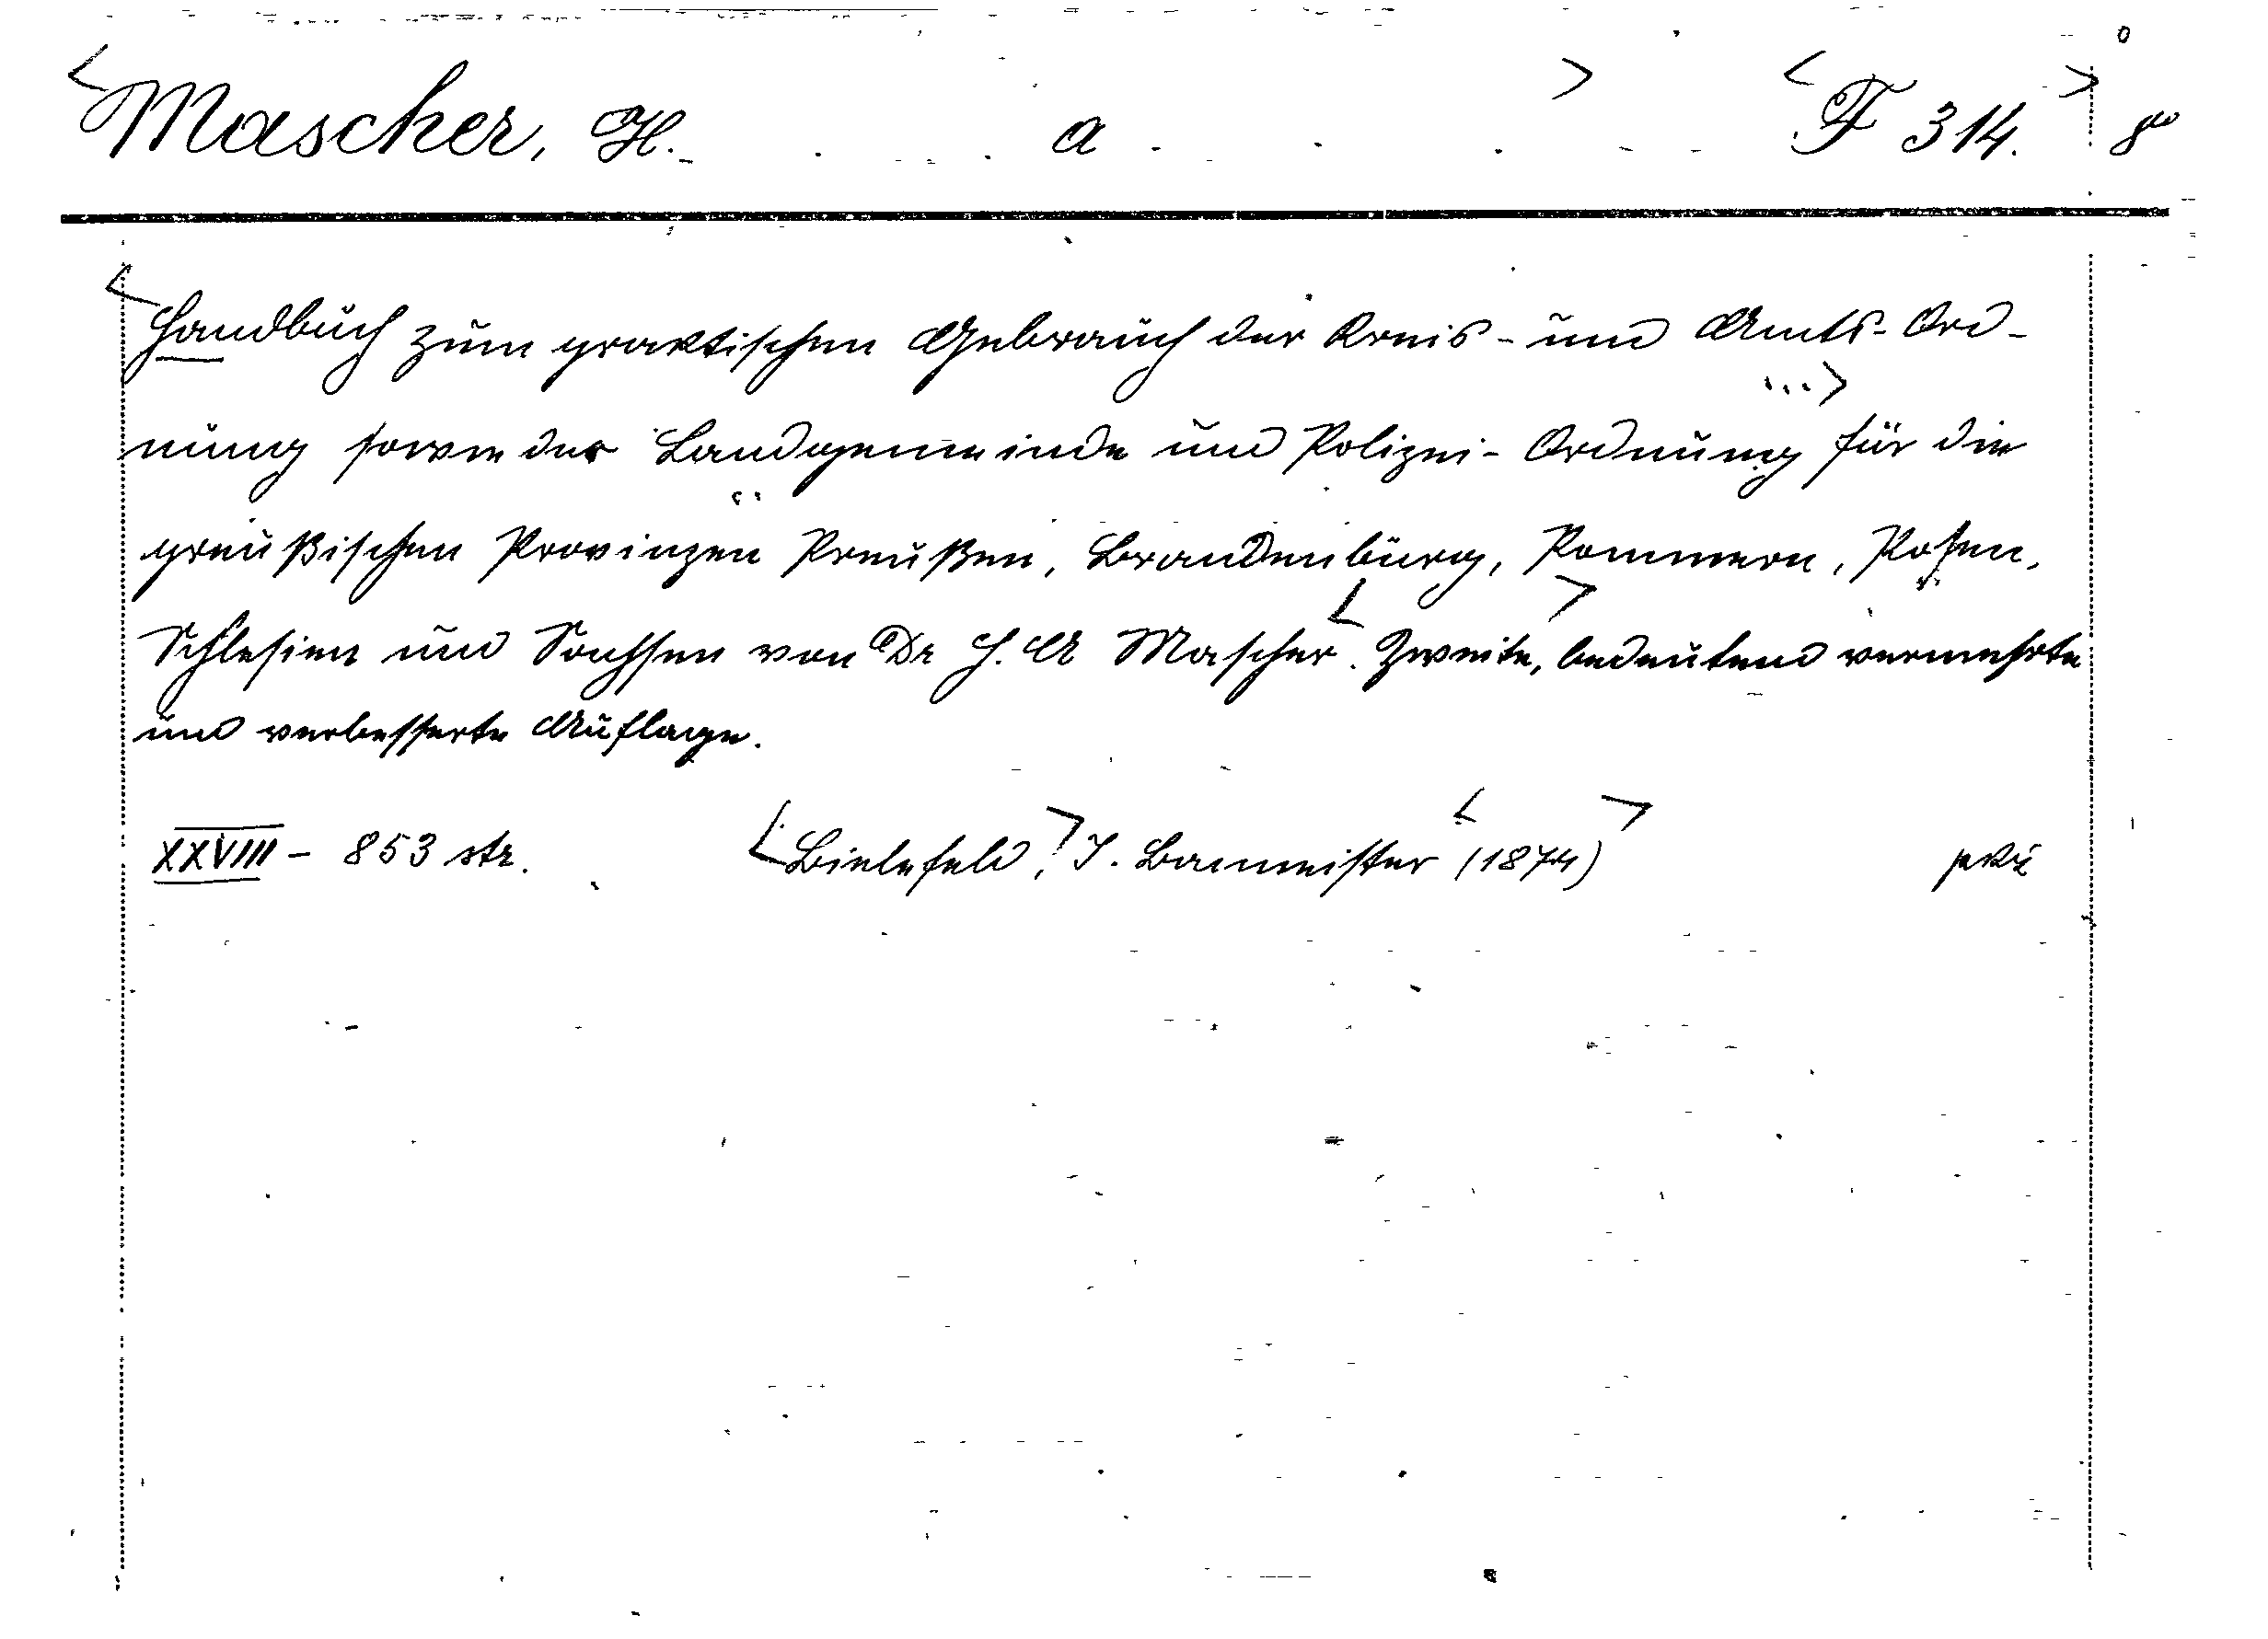 <Mascher, H. a > <F 314.> 8º
<Handbuch zum praktischen Gebrauch der Kreis- und Amts-Ord-
nung sowie der Landgemeinde und Polizei-Ordnung ...> für die
preußischen Provinzen Preußen, Brandenburg, Pommern, Posen,
Schlesien und Sachsen von Dr H. A Mascher. <Zweite,> bedeutend vermehrte
und verbesserte Auflage.
XXVIII - 853 str. <Bielefeld,> J. Bacmeister <(1874)>